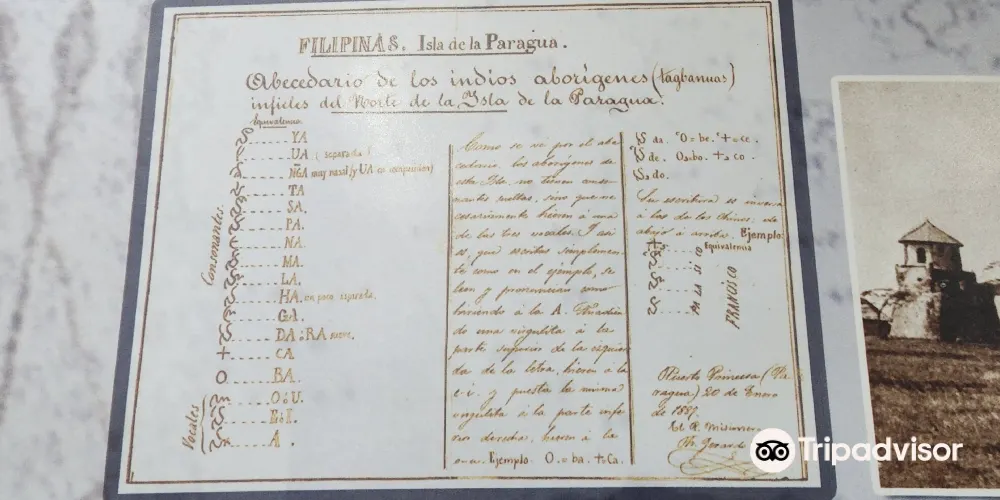 FILIPINAS. Isla de la Paragua.
Abecedario de los indios aborígenes (tagbanuas)
infieles del Norte de la Isla de la Paragua.
Equivalencia
Consonantes.
YA
UA ( separada
NGA muy nasal y UA en composicion)
TA
SA.
PA.
NA.
MA.
LA.
HA. un poco separada.
GA.
DA ó RA suave.
+ CA
O BA.
Vocales
O ó U.
E ó I.
A.
Como se vé por el abe
cedario, los aborígenes de
esta Isla, no tienen conso
nantes sueltas, sino que ne
cesariamente hieren á una
de las tres vocales. Y asi
es, que escritas simplemen
te como en el ejemplo, se
leen y pronuncian como
hiriendo á la A. Añadien
do una virgulita á la
parte superior de la izquier
da de la letra, hieren á la
e-i. y puesta la misma
virgulita á la parte infe
rior derecha, hieren á la
o-u. Ejemplo: O.=ba. +=Ca.
da. O=be. +=ce.
de. O=bo. +=co.
do.
Su escritura es inversa
á la de los chinos; de
abajo á arriba. Ejemplo:
Equivalencia
PALASICO
FRANCISCO
Puerto Princesa (Pa
ragua) 20 de Enero
de 1887.
El P. Misionero
Fr. Gerardo
Tripadvisor